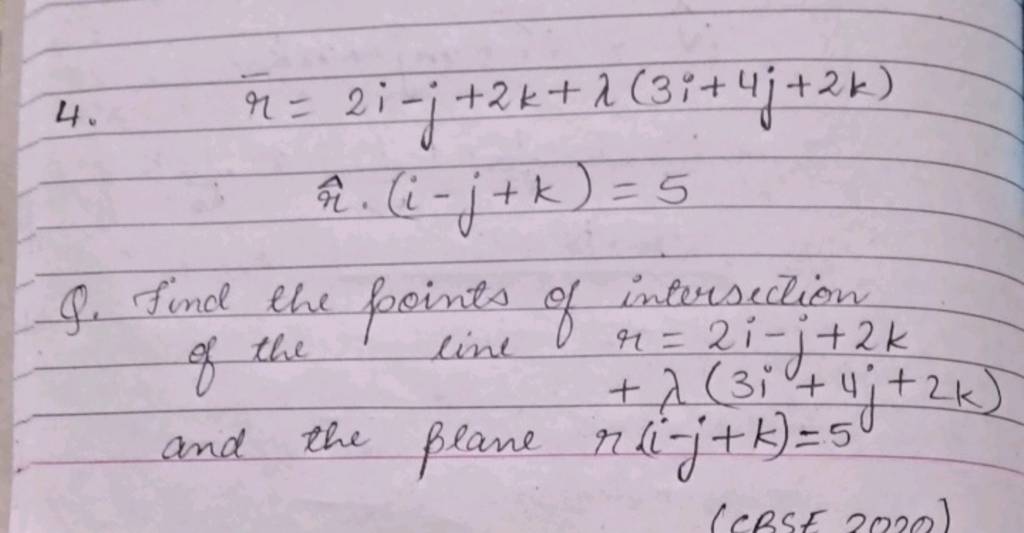 4. r̄ = 2i - j + 2k + λ (3i + 4j + 2k)
r̂ . (i - j + k) = 5
Q. Find the points of intersection
of the line r = 2i - j + 2k
+ λ (3i + 4j + 2k)
and the plane r.(i - j + k) = 5
(CBSE 2020)